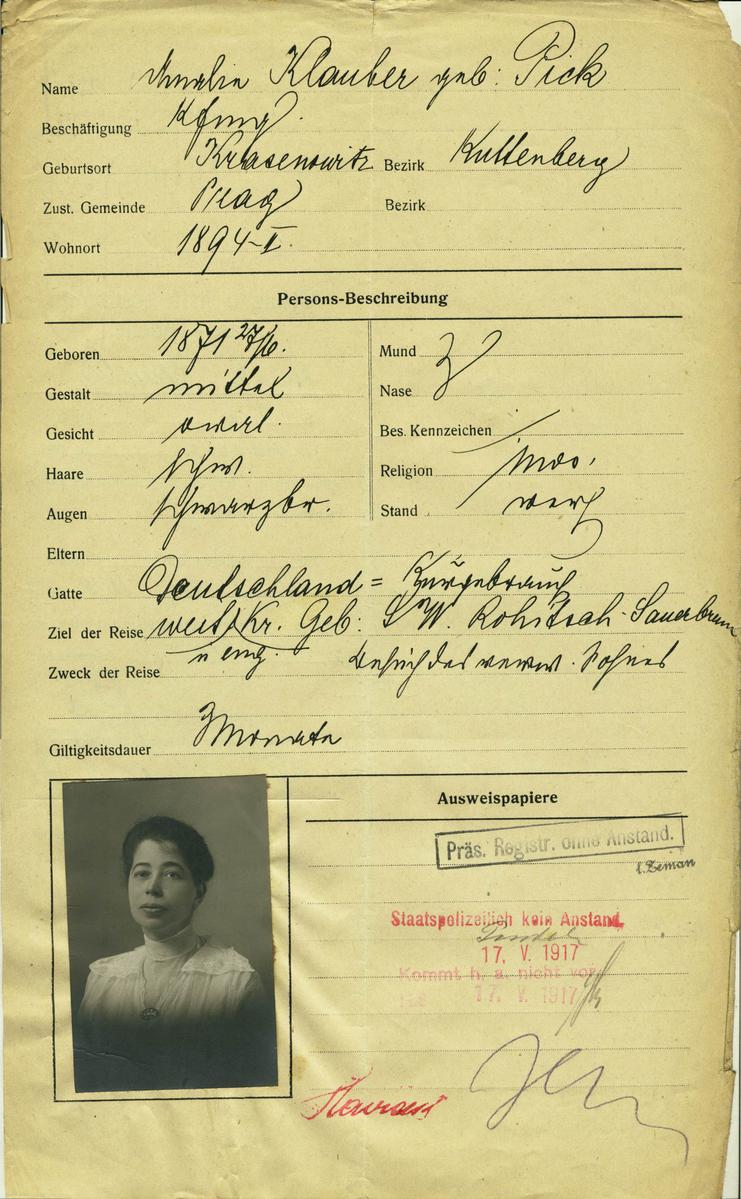 Name Amalie Klauber geb: Pick
Beschäftigung
Geburtsort Krasenowitz Bezirk Kuttenberg
Zust. Gemeinde Prag Bezirk
Wohnort 1894-II.
Persons-Beschreibung
Geboren 1871 27/6. Mund
Gestalt mittel Nase
Gesicht oval. Bes. Kennzeichen
Haare schw. Religion mos.
Augen schwarzbr. Stand verh
Eltern
Gatte Deutschland = Kurgebrauch
Ziel der Reise Kr. Geb: Rohitsch-Sauerbrunn
Zweck der Reise u Besuch des verw. Sohnes
Giltigkeitsdauer 3 Monate
Ausweispapiere
Präs. Registr. ohne Anstand.
Zeman
Staatspolizeilich kein Anstand.
17. V. 1917
Kommt h. a. nicht vor
17. V. 1917